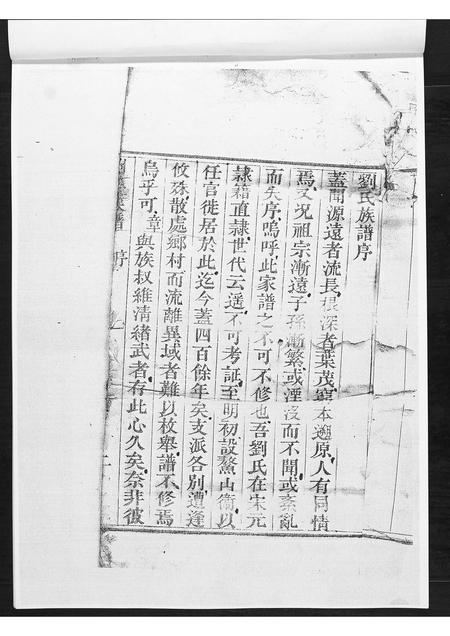 劉氏族譜序
蓋聞源遠者流長根深者葉茂窮本遡原人有同情
焉又况祖宗漸遠子孫漸繁或湮没而不聞或紊亂
而失序嗚呼此家譜之不可不修也吾劉氏在宋元
隸籍直隸世代云遥不可考証至明初設鰲山衛以
任官徙居於此迄今蓋四百餘年矣支派各别遭逢
攸殊散處鄉村而流離異域者難以枚舉譜不修焉
烏乎可章與族叔維清緒武者存此心久矣奈非彼
族譜 序